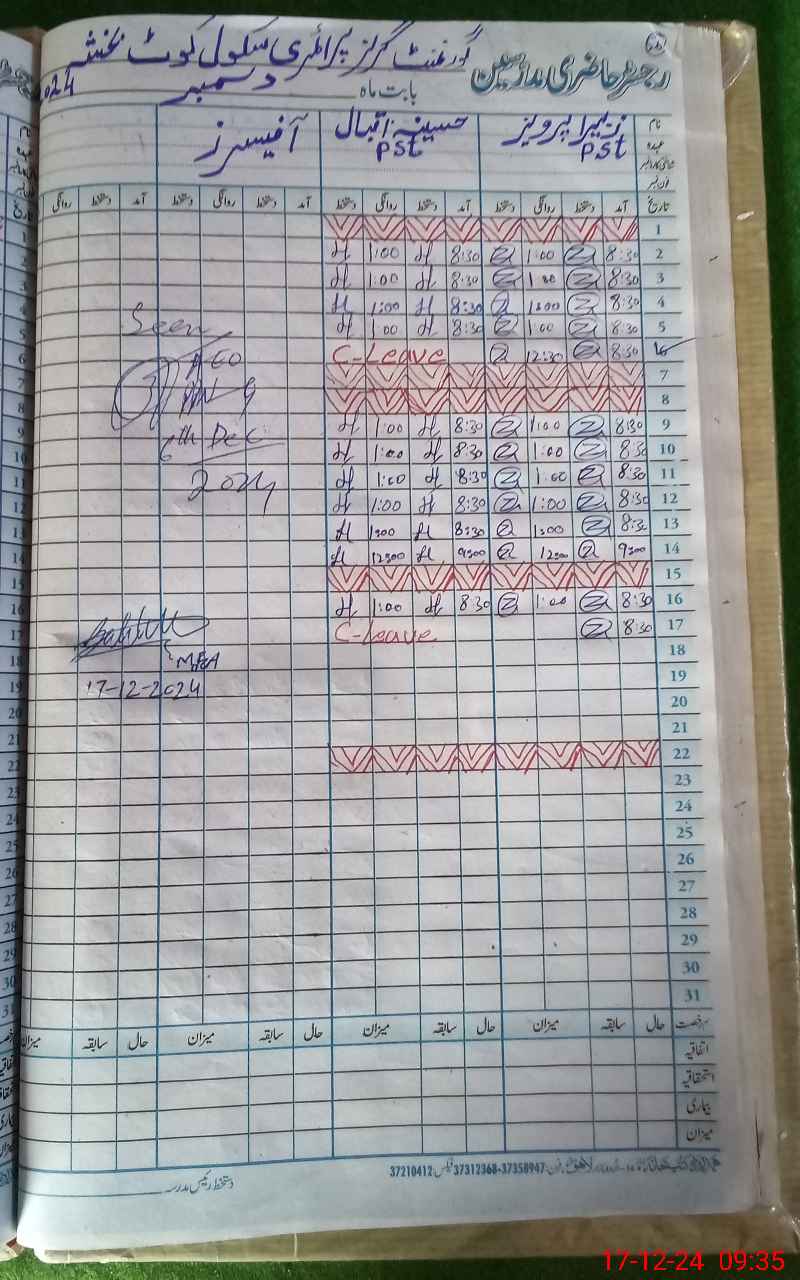 رجسٹر حاضری مدرسین گورنمنٹ گرلز پرائمری سکول کوٹ بخشہ
بابت ماہ دسمبر 2024
نام زنیرا پرویز حسینہ اقبال آفیسرز
عہدہ PST PST
فون نمبر
تاریخ آمد دستخط روانگی دستخط آمد دستخط روانگی دستخط آمد دستخط روانگی دستخط آمد دستخط روانگی
1
2 8:30 1:00 8:30 H 1:00 H
3 8:30 1:00 8:30 H 1:00 H
4 8:30 1:00 8:30 H 1:00 H
5 8:30 1:00 8:30 H 1:00 H
Seen
6 8:30 12:30 C-Leave
AEO
7
8
9 8:30 1:00 8:30 H 1:00 H
6th Dec
10 8:30 1:00 8:30 H 1:00 H
11 8:30 1:00 8:30 H 1:00 H
2024
12 8:30 1:00 8:30 H 1:00 H
13 8:30 1:00 8:30 H 1:00 H
14 9:00 12:00 9:00 H 12:00 H
15
16 8:30 1:00 8:30 H 1:00 H
17 8:30 C-Leave
18
MEA
19
17-12-2024
20
21
22
23
24
25
26
27
28
29
30
31
رخصت حال سابقہ میزان حال سابقہ میزان حال سابقہ میزان حال سابقہ میزان
اتفاقیہ
استحقاقیہ
بیماری
میزان
لاہور فون:37358947-37312368 فیکس:37210412
دستخط رئیس مدرسہ
17-12-24 09:35